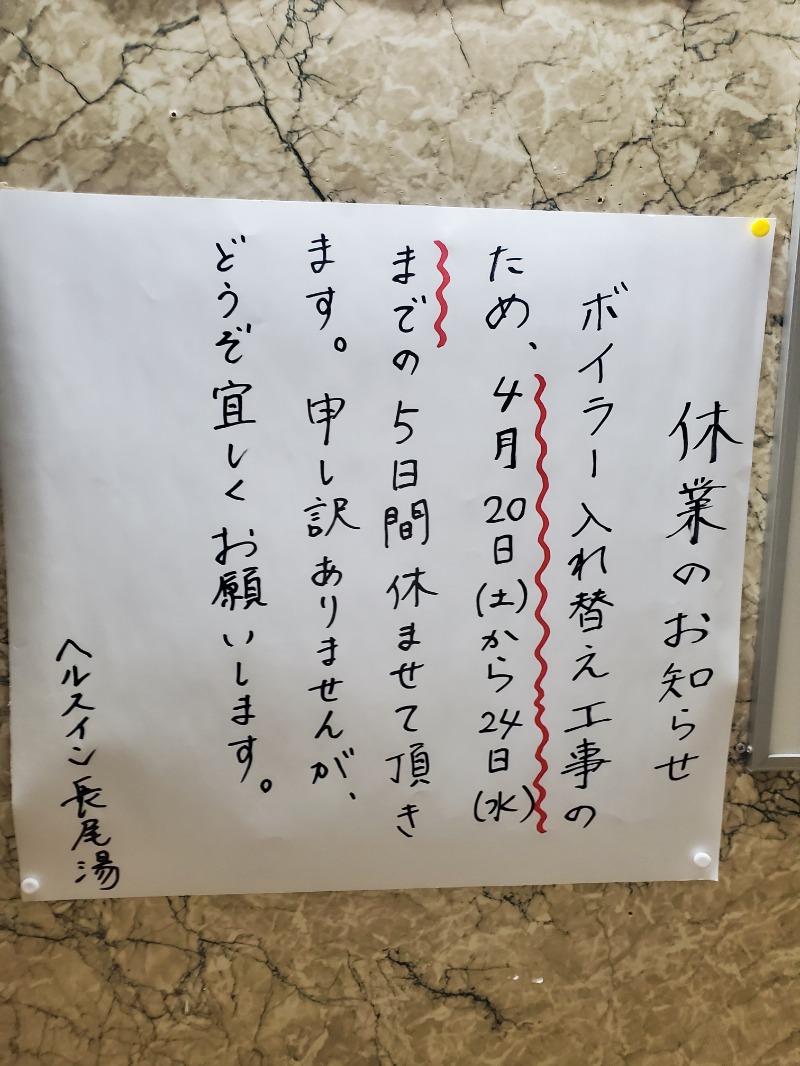 休業のお知らせ
ボイラー入れ替え工事の
ため、4月20日(土)から24日(水)
までの5日間休ませて頂き
ます。申し訳ありませんが、
どうぞ宜しくお願いします。
ヘルスイン長尾湯